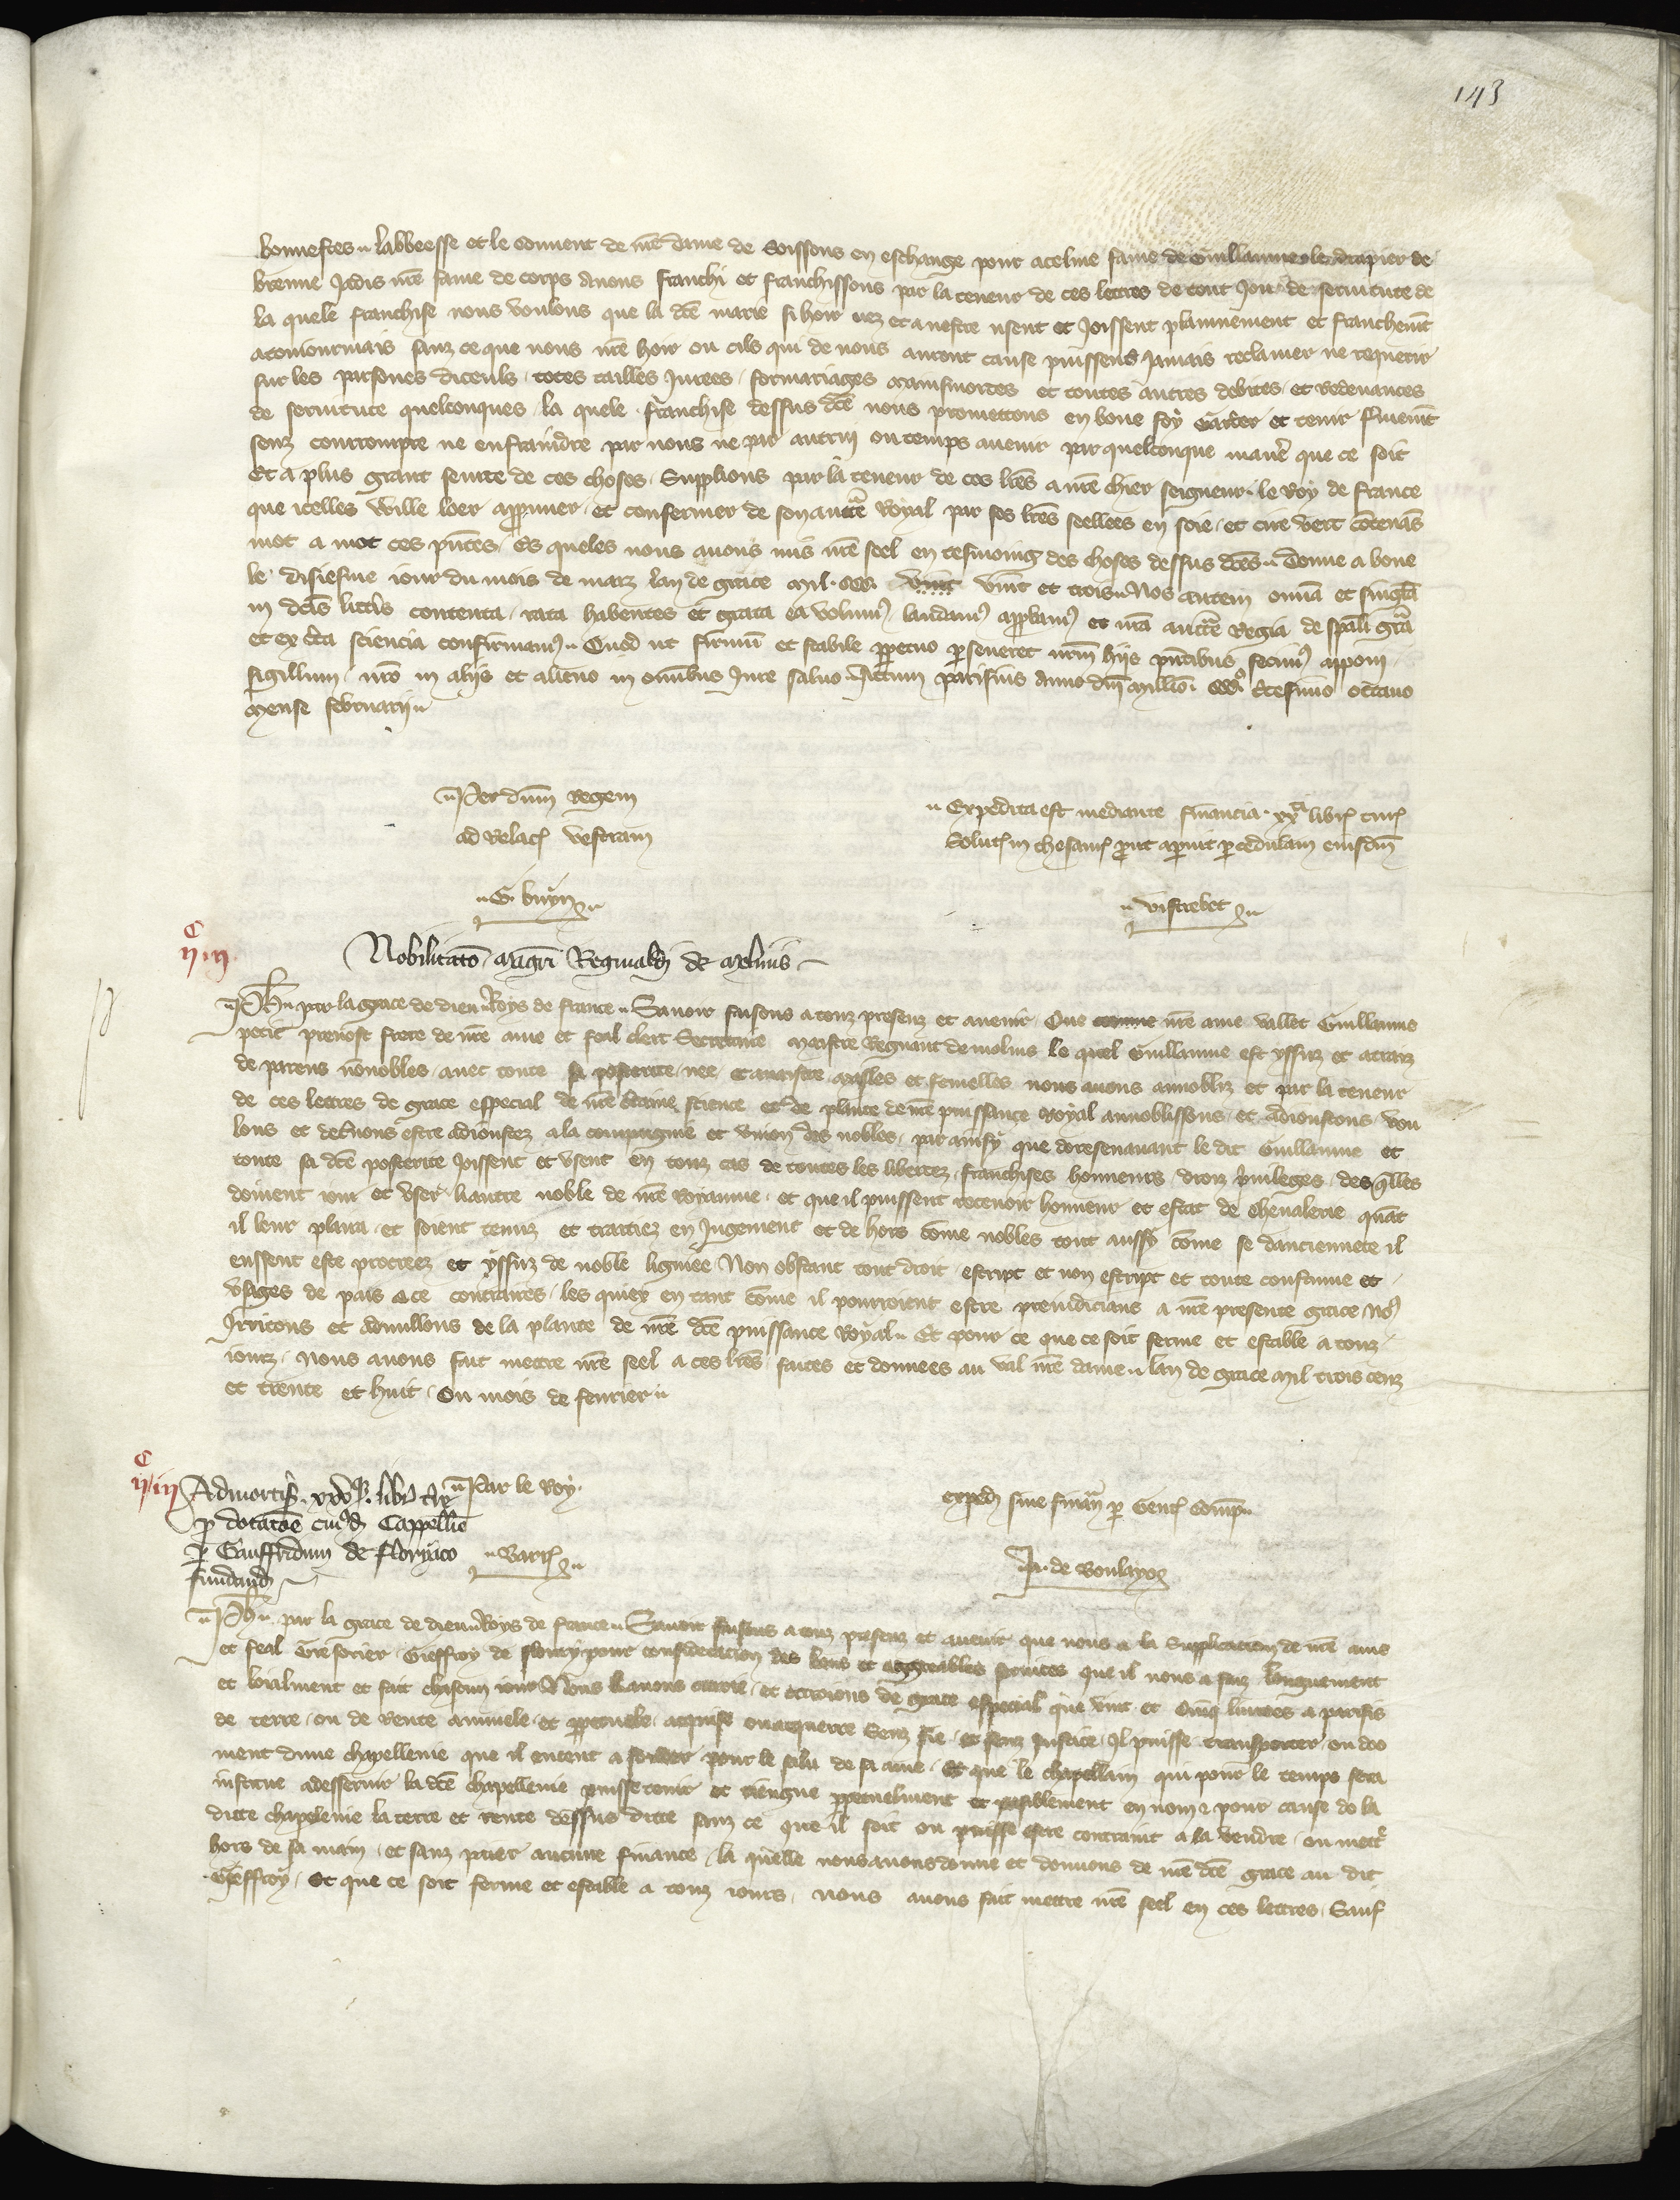 143
honnestes labbeesse et le couvent de nre dame de Soissons en eschange pour aceline fame de Guillaume le drapier de
brenne Jadis nre fame de corps avons franchi et franchissons par la teneur de ces lettres de tout Jou de servitute de
la quele franchise nous voulons que la dce marie si hoir nez et a nestre usent et Joissent plainnement et franchemt
sanz ce que nous nre hoir ou cils qui de nous auront cause puissent Jamais reclamer ne requerir
sur les parsones diceuls totes tailles Jurees formariages mainsmortes et toutes autres debites et redevances
de servitute quelconques la quele franchise dessus dce nous promettons en bone foy Garder et tenir
senz courrompre ne enfraindre par nous ne par autrui ou temps avenir par quelconque manere que ce soit
Et a plus grant seurte de ces choses Supplions par la teneur de ces lres a nre chier seigneur le Roy de france
que icelles wille loer appruuer et confermer de son aucte Royal par ses lres seellees en soie et cire vert contenas
mot a mot ces pntes Es queles nous avons mis nre seel en tesmoing des choses dessus dces Donne a
le disiesme iour du mois de marz lan de grace mil ccc vint vint et trois Nos autem omia et singla
in dcis litteris contenta rata habentes et grata ea volum laudam approbam et nra aucte Regia de spali gra
et ex certa sciencia confirmam Quod ut firmu et stabile perpetuo perseveret nrm hiis pntibus fecim apponi
sigillum nro in aliis et alieno in omibus Jure salvo Actum parisius Anno dni millio ccc tcesimo octavo
mense februarii
Per dnm Regem
ad Relac vestram
G. buyn
Expedita est mediante financia xxa libr tur
Solut in thesaur prout apparuit per cedulam eiusdem
vistrebec
Nobilitatio magri Reginaldi de molinis
Ph par la grace de dieu Roys de france Savoir faisons a touz presenz et avenir Que comme nre ame vallet Guillaume
petit prevost frere de nre ame et feal clerc Secretaire maistre Regnaut de molins le quel Guillaume est yssuz et attraiz
de parens nonnobles avec toute sa posterite nee et a naistre masles et femelles nous avons annobliz et par la teneur
de ces lettres de grace especial de nre certaine science et de plante de nre puissance Royal annoblissons et adioustons vou
lons et decernons estre adioustez a la compagnie et union des nobles par ainsy que doresenavant le dit Guillaume et
toute sa dce posterite Joissent et usent en touz cas de toutes les libertez franchises honneurs droiz privileges des qlles
doivent iouir et user li autre noble de nre Royaume et que il puissent recevoir honneur et estat de Chevalerie quat
il leur plaira et soient tenuz et traitiez en Jugement et de hors come nobles tout aussy come se danciennete il
eussent este procreez et yssuz de noble lignee Non obstant tout droit escript et non escript et toute coustume et
usages de pais a ce contraires les quiex en tant come il pourroient estre preiudicians a nre presente grace No
Jrritons et adnullons de la plante de nre dce puissance Royal Et pour ce que ce soit ferme et estable a touz
iours Nous avons fait mettre nre seel a ces lres faites et donnees au val nre dame lan de grace mil trois cenz
et trente et huit Ou mois de fevrier
Par le Roy
Barr
exped sine finan per Gent comp
Ja. de Boulayo
Admortis. xxv libr
p dotatoe cuiusd Cappellie
per Gauffridum de floriaco
fundand
Ph par la grace de dieu Roys de france Savoir faisons a touz presenz et avenir que nous a la Supplicacion de nre ame
et feal Tresorier Gieffroy de floury pour consideracion des bons et aggreables services que il nous a faiz longuement
et loialment et fait chascun iour Nous li avons ottroie et ottroions de grace especial que vint et Cinq livrees a parisis
de terre ou de rente annuele et perpetuele acquise ou a querre Senz fie et senz Justice Il puisse transporter ou doo
ment dune chapellenie que il entent a fonder pour le salu de sa ame Et que le chapellain qui pour le temps sera
institue a desservir la dce chapellenie puisse tenir et tiengne perpetuelment et paisiblement en nom et pour cause de la
dicte chapelenie la terre et rente dessus dicte sanz ce que il soit ou puisse estre contraint a la vendre ou mettre
hors de sa main et sanz paier aucune finance la quelle nous avons donne et donnons de nre dce grace au dit
Gieffroy Et que ce soit ferme et estable a touz iours nous avons fait mettre nre seel en ces lettres Sauf